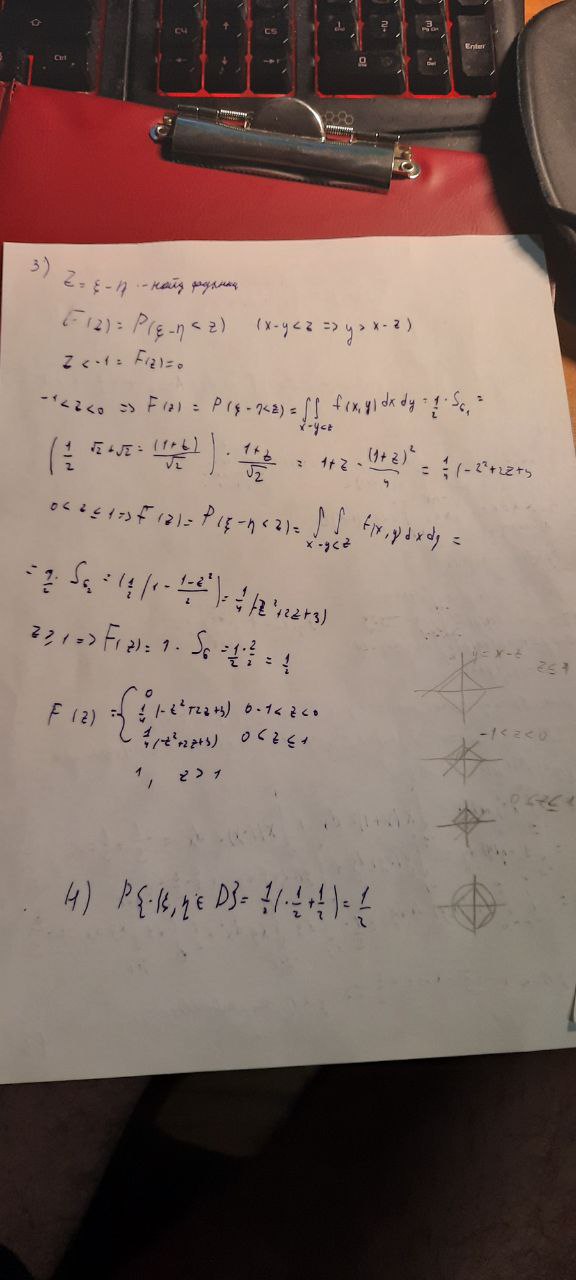 Ctrl
C4
↑
C5
1
2
3
Enter
0
Del
3) Z = ξ - η
F(z) = P(ξ - η < z) (x-y<z => y > x-z)
z < -1 = F(z)=0
-1<z<0 => F(z) = P(ξ-η<z) = ∬ f(x,y) dx dy = 1/2 · S_G1 =
x-y<z
(1/2 √2·√2 = (1+z)/√2) · (1+z)/√2 = 1+z · (1+z)²/4 = 1/4(-z²+2z+3
0<z≤1 => F(z) = P(ξ-η<z) = ∬ f(x,y) dx dy =
x-y<z
= 1/2 · S_G2 = (1/2(1 - 1-z²/2) = 1/4(-z²+2z+3)
z≥1 => F(z) = 1 · S_G = 1/2 · 2/2 = 1/2
F(z) = { 0
1/4(-z²+2z+3) 0 -1<z<0
1/4(-z²+2z+3) 0<z≤1
1, z>1
y = x-z
-1<z<0
0<z≤1
4) P{·(ξ, η ∈ D} = 1/2(·1/2+1/2) = 1/2